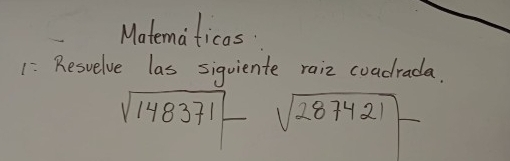 Matemáticas.
1= Resuelve las siguiente raiz cuadrada.
√148371 √287421